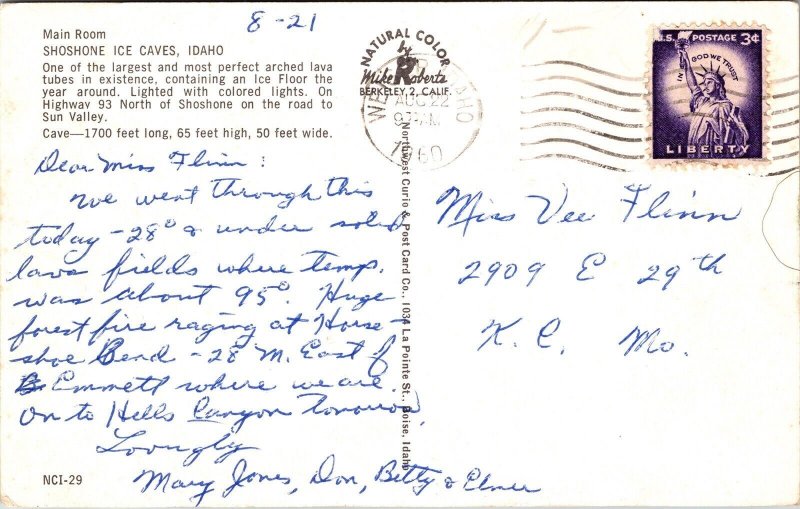 8-21
Main Room
SHOSHONE ICE CAVES, IDAHO
One of the largest and most perfect arched lava
tubes in existence, containing an Ice Floor the
year around. Lighted with colored lights. On
Highway 93 North of Shoshone on the road to
Sun Valley.
Cave—1700 feet long, 65 feet high, 50 feet wide.
Dear Miss Flinn:
We went through this
today - 28° & under solid
lava fields where temp.
was about 95°. Huge
forest fire raging at Horse-
shoe Bend - 28 M. East of
Emmett where we are.
On to Hells Canyon tomorrow.
Lovingly
Mary Jones, Don, Betty & Elmer
NCI-29
NATURAL COLOR
by
Mike Roberts
BERKELEY 2, CALIF.
IDAHO
AUG 22
AM
1960
Northwest Curio & Post Card Co., 1034 La Pointe St., Boise, Idaho
U.S. POSTAGE 3¢
IN GOD WE TRUST
LIBERTY
Miss Vee Flinn
2909 E 29th
K. C. Mo.